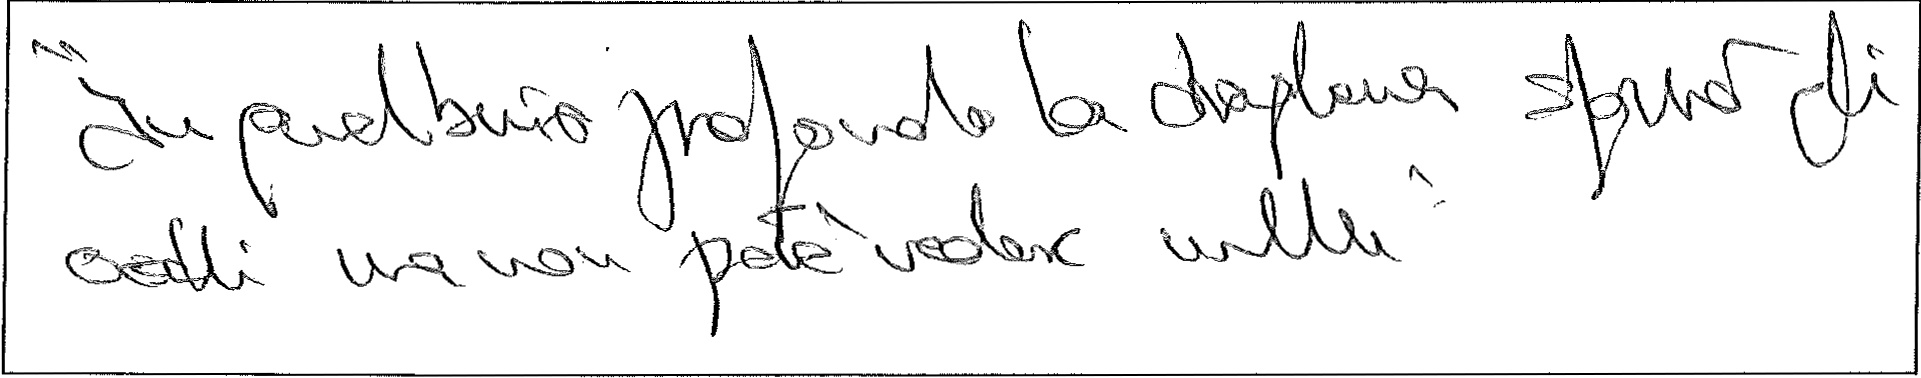 "In quel buio profondo la dragona sforzò gli
occhi ma non poté vedere nulla"